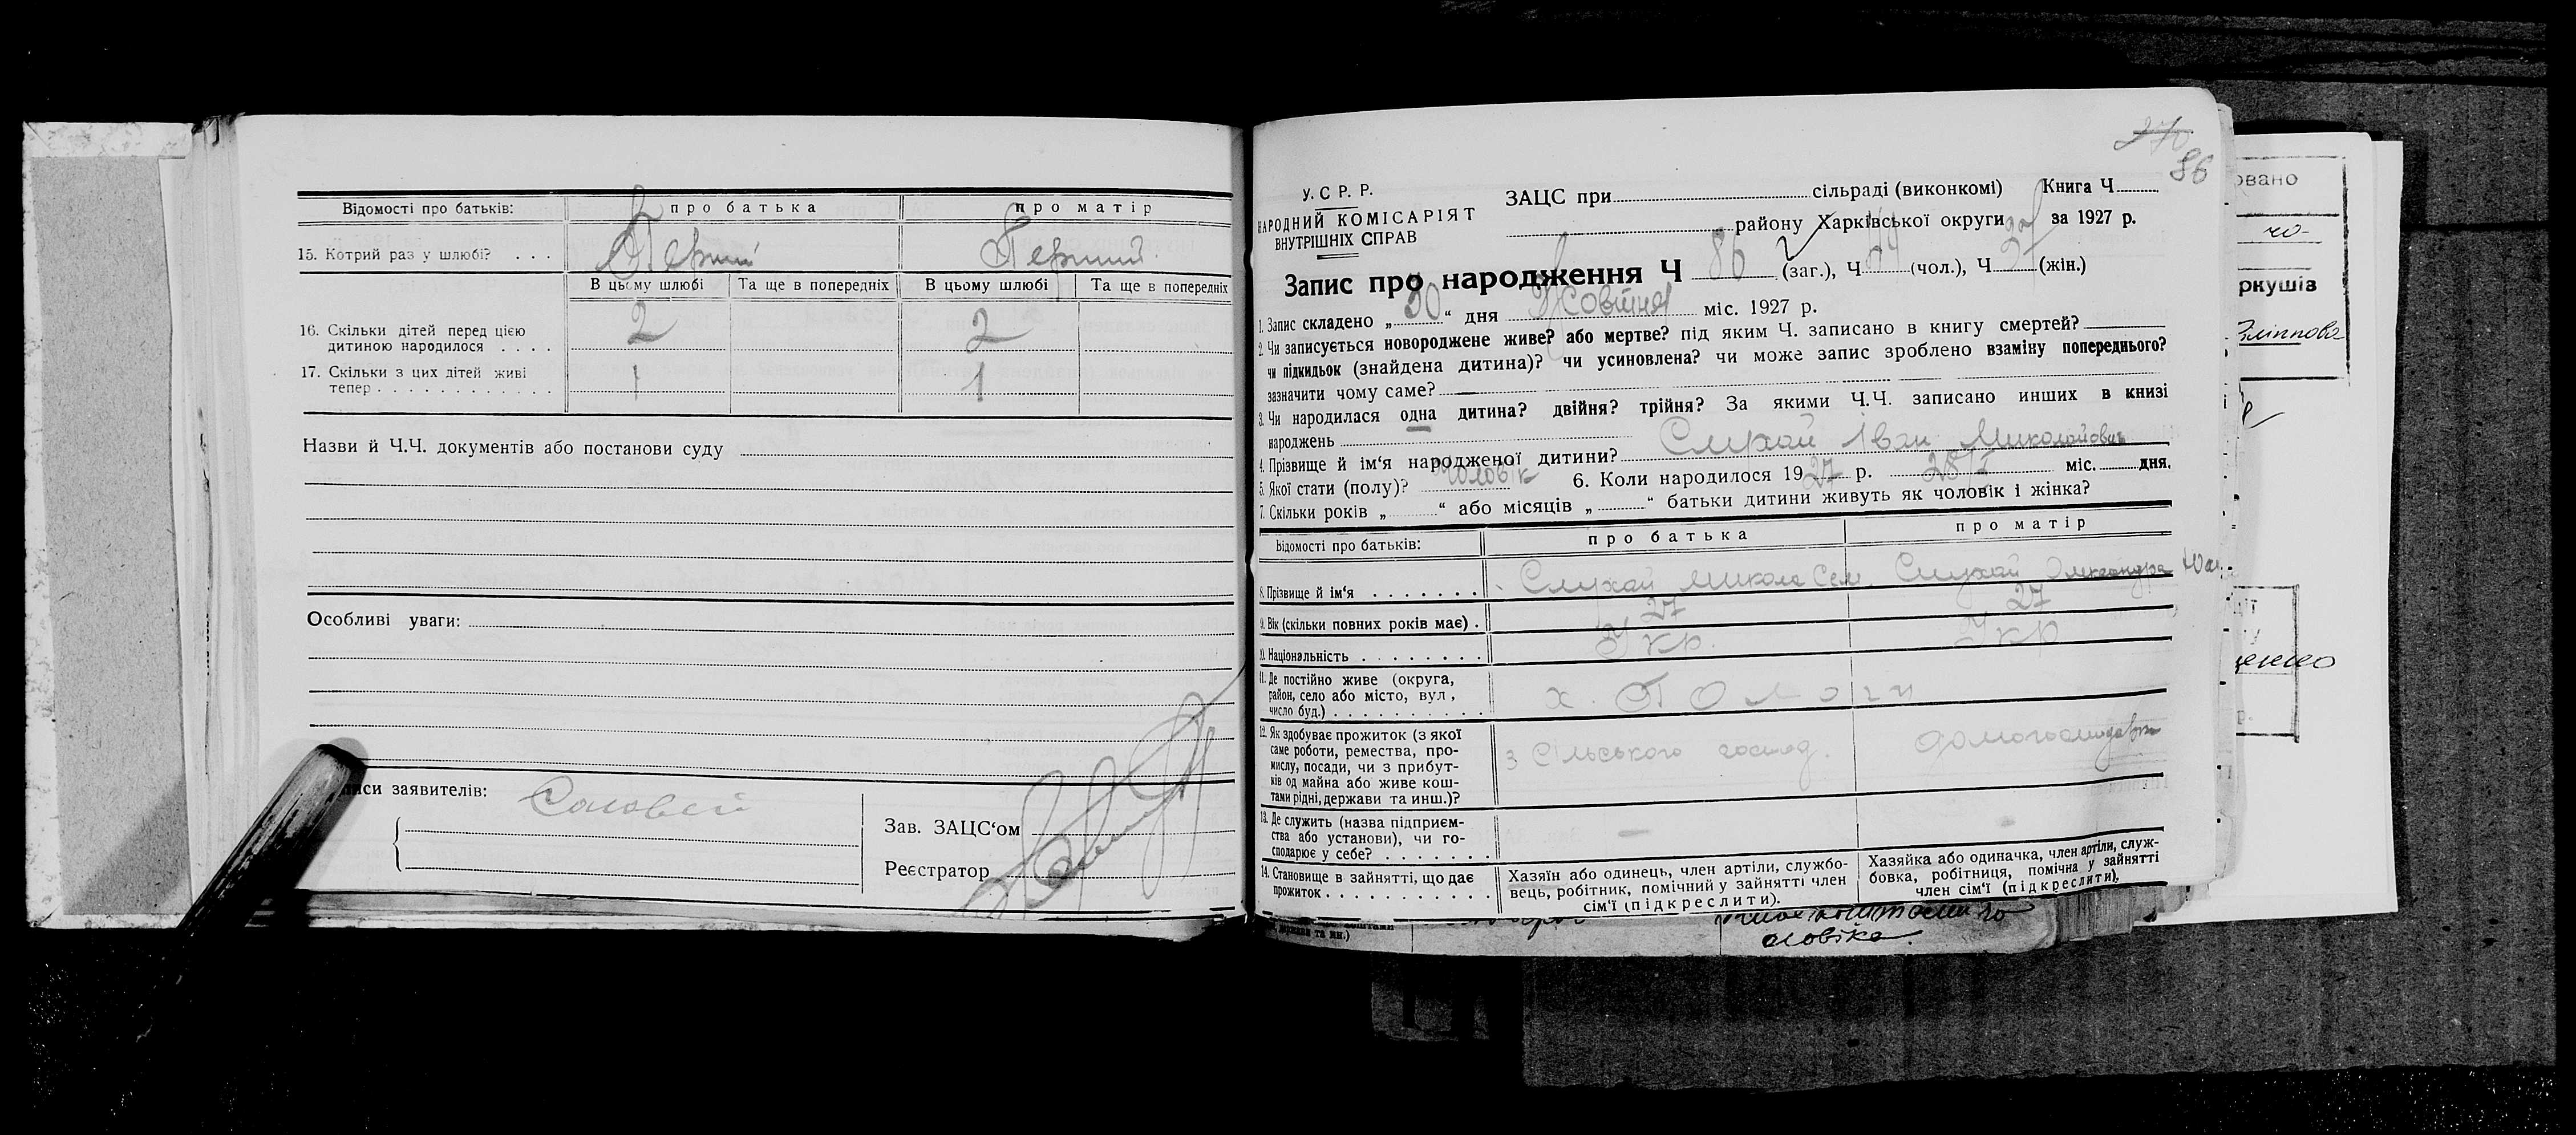 Відомості про батьків: про батька про матір
15. Котрий раз у шлюбі? . . . Перший Перший
В цьому шлюбі Та ще в попередніх В цьому шлюбі Та ще в попередніх
16. Скільки дітей перед цією
дитиною народилося . . . . 2 2
17. Скільки з цих дітей живі
тепер . . . . . . . . . . . . 1 1
Назви й Ч.Ч. документів або постанови суду
Особливі уваги:
заявителів:
Зав. ЗАЦС‘ом
Реєстратор
270
86
У.С Р. Р.
НАРОДНИЙ КОМІСАРІЯТ
ВНУТРІШНІХ СПРАВ
ЗАЦС при сільраді (виконкомі) Книга Ч.
району Харківської округи за 1927 р.
Запис про народження Ч 86 (заг.), Ч (чол.), Ч (жін.)
1. Запис складено „ 30 “ дня Жовтня міс. 1927 р.
2. Чи записується новороджене живе? або мертве? під яким Ч. записано в книгу смертей?
чи підкидьок (знайдена дитина)? чи усиновлена? чи може запис зроблено взаміну попереднього?
зазначити чому саме?
3. Чи народилася одна дитина? двійня? трійня? За якими Ч.Ч. записано инших в книзі
народжень
4. Прізвище й ім‘я народженої дитини? Слухай Іван Миколайович
5. Якої стати (полу)? Чоловік 6. Коли народилося 1927 р. 28/X міс. дня.
7. Скільки років „ “ або місяців „ “ батьки дитини живуть як чоловік і жінка?
Відомості про батьків: про батька про матір
8. Прізвище й ім‘я . . . . . . . Слухай Микола Сем. Слухай Олександра
9. Вік (скільки повних років має) . 27 27
10. Національність . . . . . . . . Укр. Укр
11. Де постійно живе (округа,
район, село або місто, вул,
число буд.) . . . . . . . . . . х.
12. Як здобуває прожиток (з якої
саме роботи, ремества, про-
мислу, посади, чи з прибут-
ків од майна або живе кош-
тами рідні, держави та инш.)?
з сільського господ.
13. Де служить (назва підприєм-
ства або установи), чи го-
сподарює у себе? . . . . . . . — -
14. Становище в зайнятті, що дає
прожиток . . . . . . . . . . .
Хазяїн або одинець, член артіли, службо-
вець, робітник, помічний у зайнятті член
сім‘ї (підкреслити).
Хазяйка або одиначка, член артіли, служ-
бовка, робітниця, помічна у зайнятті
член сім‘ї (підкреслити).
держави та ин.)